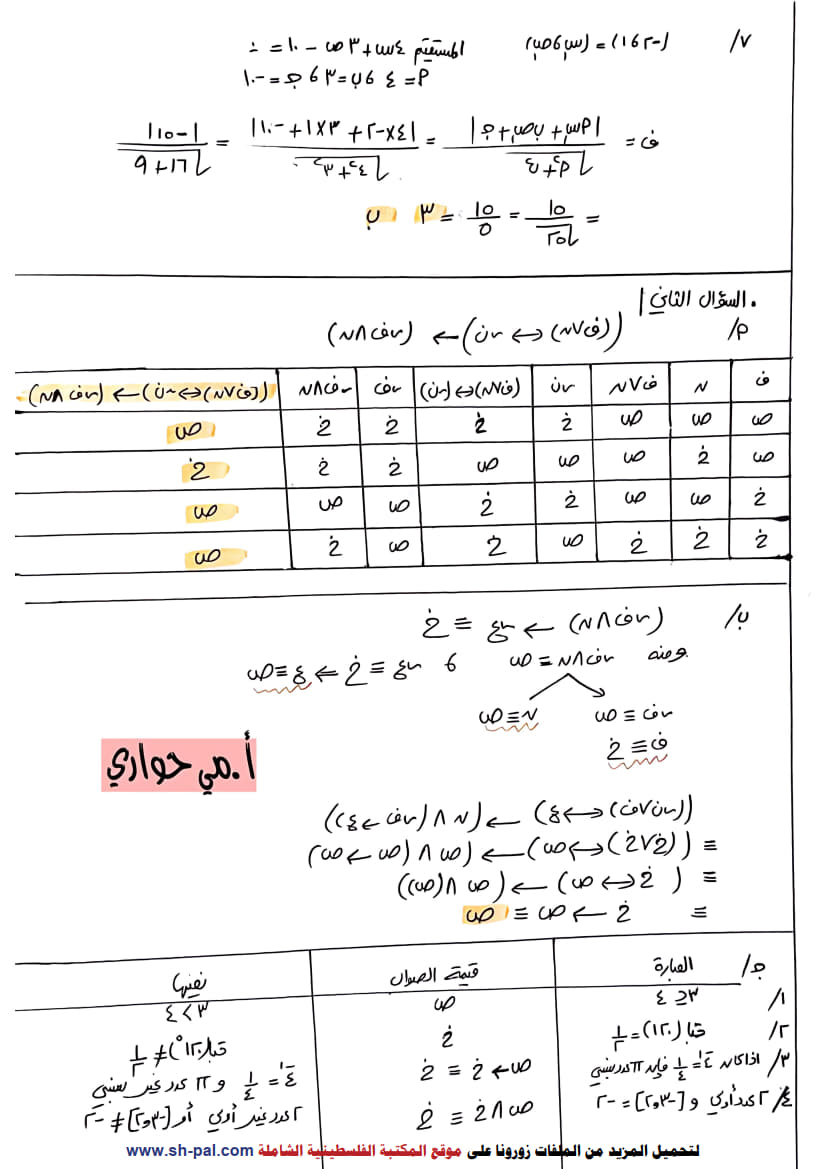 ٧/ (-٢، ١) = (س، ص) المستقيم ٤س + ٣ص - ١٠ = ٠
أ = ٤، ب = ٣، جـ = -١٠
ف = |أس١ + ب ص١ + جـ| / √(أ² + ب²) = |٤×-٢ + ٣×١ + -١٠| / √(٤² + ٣²) = |-١٥| / √(١٦ + ٩)
= ١٥ / √٢٥ = ١٥ / ٥ = ٣ ب
السؤال الثاني /
أ/ ((ف ∨ ن) ↔ ~ن) → (~ف ∧ ن)
ف | ن | ف ∨ ن | ~ن | (ف ∨ ن) ↔ (~ن) | ~ف | ~ف ∧ ن | ((ف ∨ ن) ↔ ~ن) → (~ف ∧ ن)
ص | ص | ص | خ | خ | خ | خ | ص
ص | خ | ص | ص | ص | خ | خ | خ
خ | ص | ص | خ | خ | ص | ص | ص
خ | خ | خ | ص | خ | ص | خ | ص
ب/ (~ف ∧ ن) → ~ع ≡ خ
ومنه ~ف ∧ ن ≡ ص ، ~ع ≡ خ ⇐ ع ≡ ص
~ف ≡ ص ن ≡ ص
ف ≡ خ
أ.مي حواري
((~ن ∨ ف) ↔ ع) → (ن ∧ (~ف → ع))
≡ ((خ ∨ خ) ↔ ص) → (ص ∧ (ص → ص))
≡ (خ ↔ ص) → (ص ∧ (ص))
≡ خ → ص ≡ ص
جـ/ العبارة | قيمة الصواب | نفيها
١/ ٣ ≥ ٤ | ص | ٣ > ٤
٢/ قتا(١٢٠) = ١/٢ | خ | قتا(١٢٠°) ≠ ١/٢
٣/ اذا كان ٤⁻¹ = ١/٤ فإن π عدد نسبي | ص → خ ≡ خ | ٤⁻¹ = ١/٤ و π عدد غير نسبي
٤/ ٢ عدد أولي و [-٢,٣] = -٢ | ص ∧ خ ≡ خ | ٢ عدد غير أولي أو [-٢,٣] ≠ -٢
لتحميل المزيد من الملفات زورونا على موقع المكتبة الفلسطينية الشاملة www.sh-pal.com